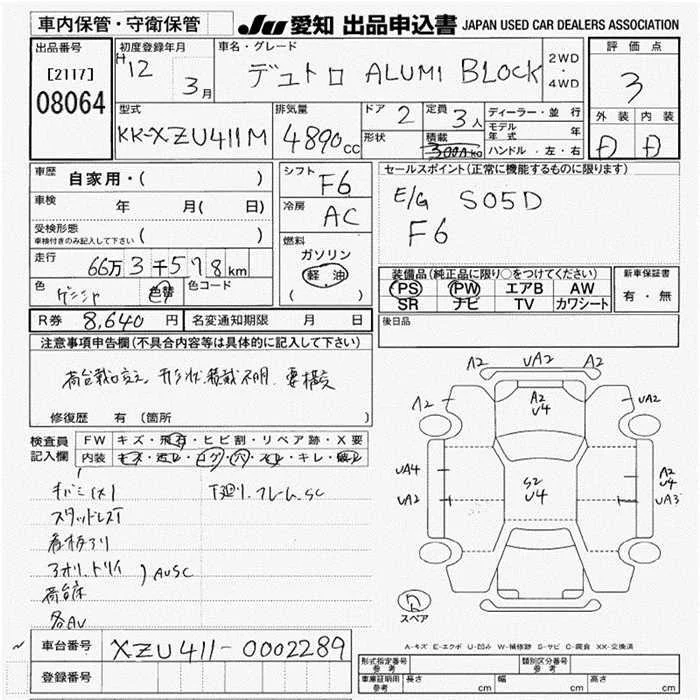 車内保管・守衛保管
JU 愛知 出品申込書 JAPAN USED CAR DEALERS ASSOCIATION
出品番号
[2117]
08064
初度登録年月
H12 3月
車名・グレード
デュトロ ALUMI BLOCK
2WD・4WD
評価点
3
外装 内装
D D
型式
KK-XZU411M
排気量
4890cc
ドア 2
形状
定員 3人
積載
300Akg
ディーラー・並行
モデル年式 年
ハンドル・左・右
車歴 自家用・( )
車検 年 月( 日)
受検形態
車検付きのみ記入して下さい ( )
走行 66万3千578km
色 色替 色コード
シフト F6
冷房 AC
燃料
ガソリン
軽油
( )
セールスポイント(正常に機能するものに限ります)
E/G S05D
F6
装備品(純正品に限り○をつけてください)
PS PW エアB AW
SR ナビ TV カワシート
新車保証書
有・無
R券 8,640円 名変通知期限 月 日
後日品
注意事項申告欄(不具合内容等は具体的に記入して下さい)
荷台載せ交え、形状、積載不明、要構変
修復歴 有(箇所 )
検査員記入欄
FW キズ・飛石・ヒビ割・リペア跡・X要
内装 キズ・汚レ・コゲ・穴・スレ・キレ・破レ
キバミ(メ)
下廻り、フレーム、SC
スタッドレスT
看板アリ
アオリ、トリイ
荷台床
)AUSC
各AU
車台番号 XZU411-0002289
登録番号
A2 UA2 A2
A2 A2 U4 UA2
UA4 S2 U4 A2 U4
UA2 UA3
スペア
A-キズ E-エクボ U-凹み W-補修跡 S-サビ C-腐食 XX-交換済
形式指定番号 参考
類別区分番号 参考
車庫証明用 参考 長さ cm 幅 cm 高さ cm